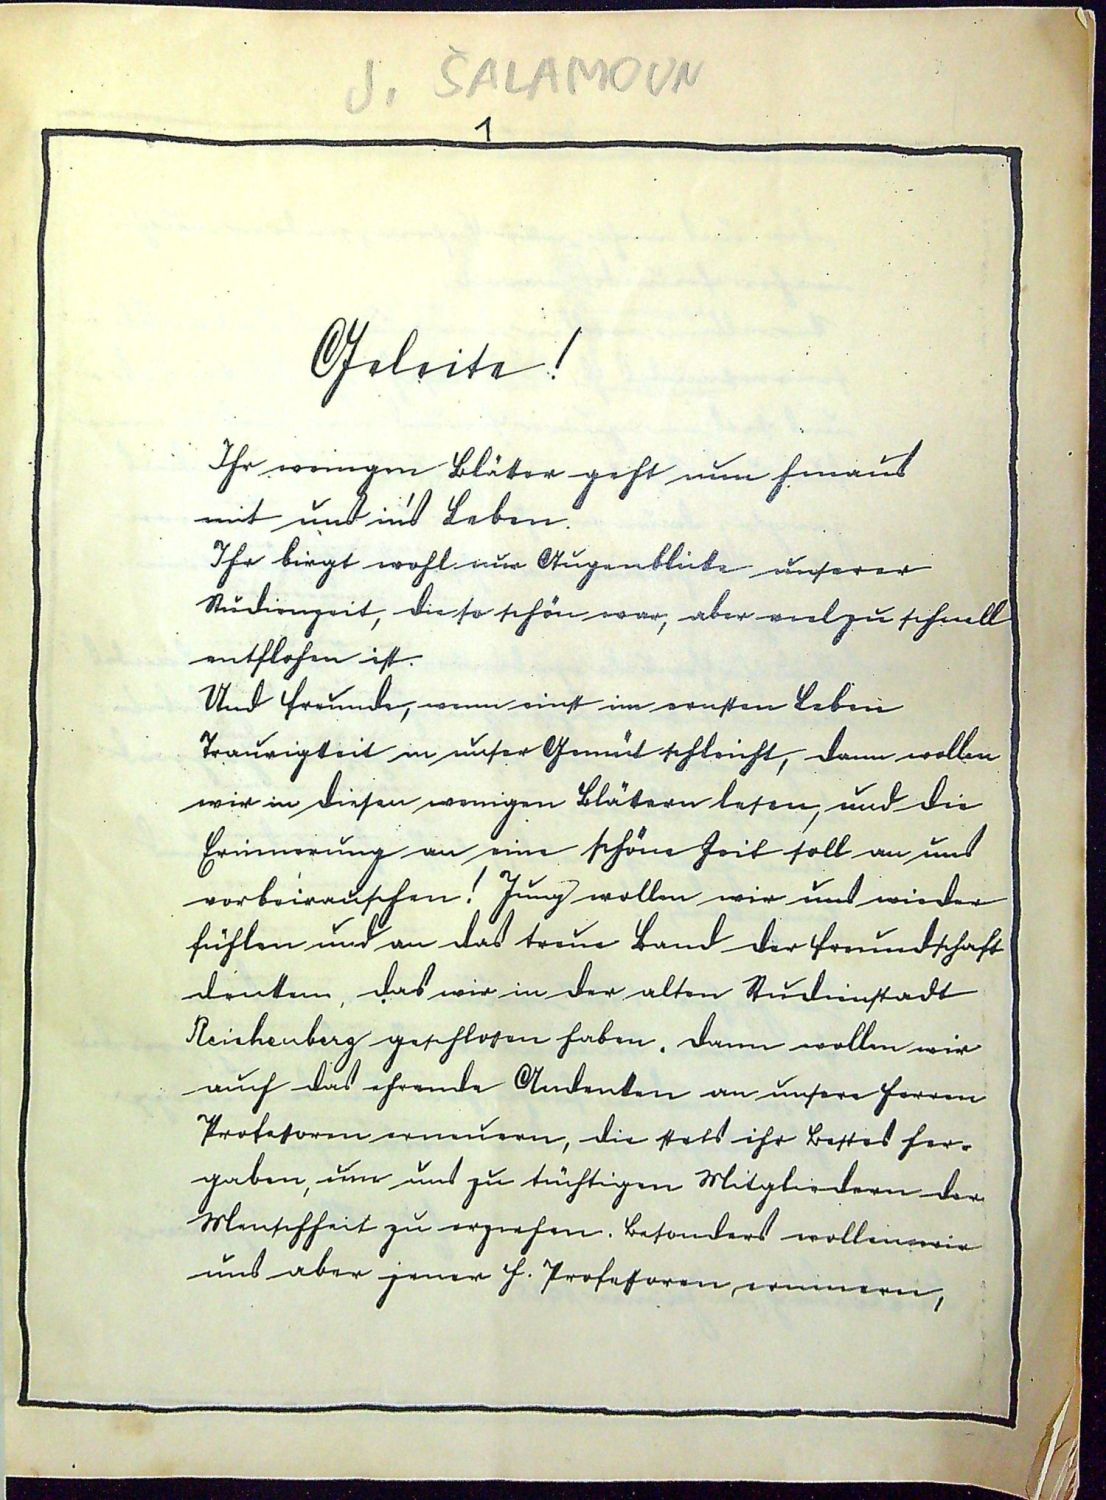 J. ŠALAMOUN
1
Geleite!
Ihr wenigen Blätter geht nun hinaus
mit uns in's Leben.
Ihr birgt wohl nur Augenblicke unserer
Studienzeit, die so schön war, aber viel zu schnell
entflohen ist.
Und Freunde, wenn einst im ernsten Leben
Traurigkeit in unser Gemüt schleicht, dann wollen
wir in diesen wenigen Blätern lesen, und die
Erinnerung an eine schöne Zeit soll an uns
vorbeirauschen! Jung wollen wir uns wieder
fühlen und an das treue Band der Freundschaft
denken, das wir in der alten Studienstadt
Reichenberg geschlosen haben. Dann wollen wir
auch das ehrende Andenken an unsere Herren
Profesoren erneuern, die stets ihr Bestes her-
gaben, um uns zu tüchtigen Mitgliedern der
Menschheit zu erziehen. Besonders wollen wir
uns aber jener H. Professoren erinnern,